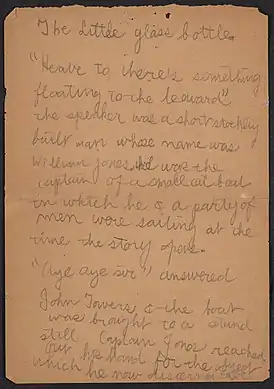 The Little glass bottle.
"Heave to there's something
floating to the leeward"
the speaker was a short stockily
built man whose name was
William Jones. he was the
captain of a small cat boat
in which he & a party of
men were sailing at the
time the story opens.
"Aye aye sir" answered
John Towers & the boat
was brought to a stand
still Captain Jones reached
out his hand for the object
which he now discerned